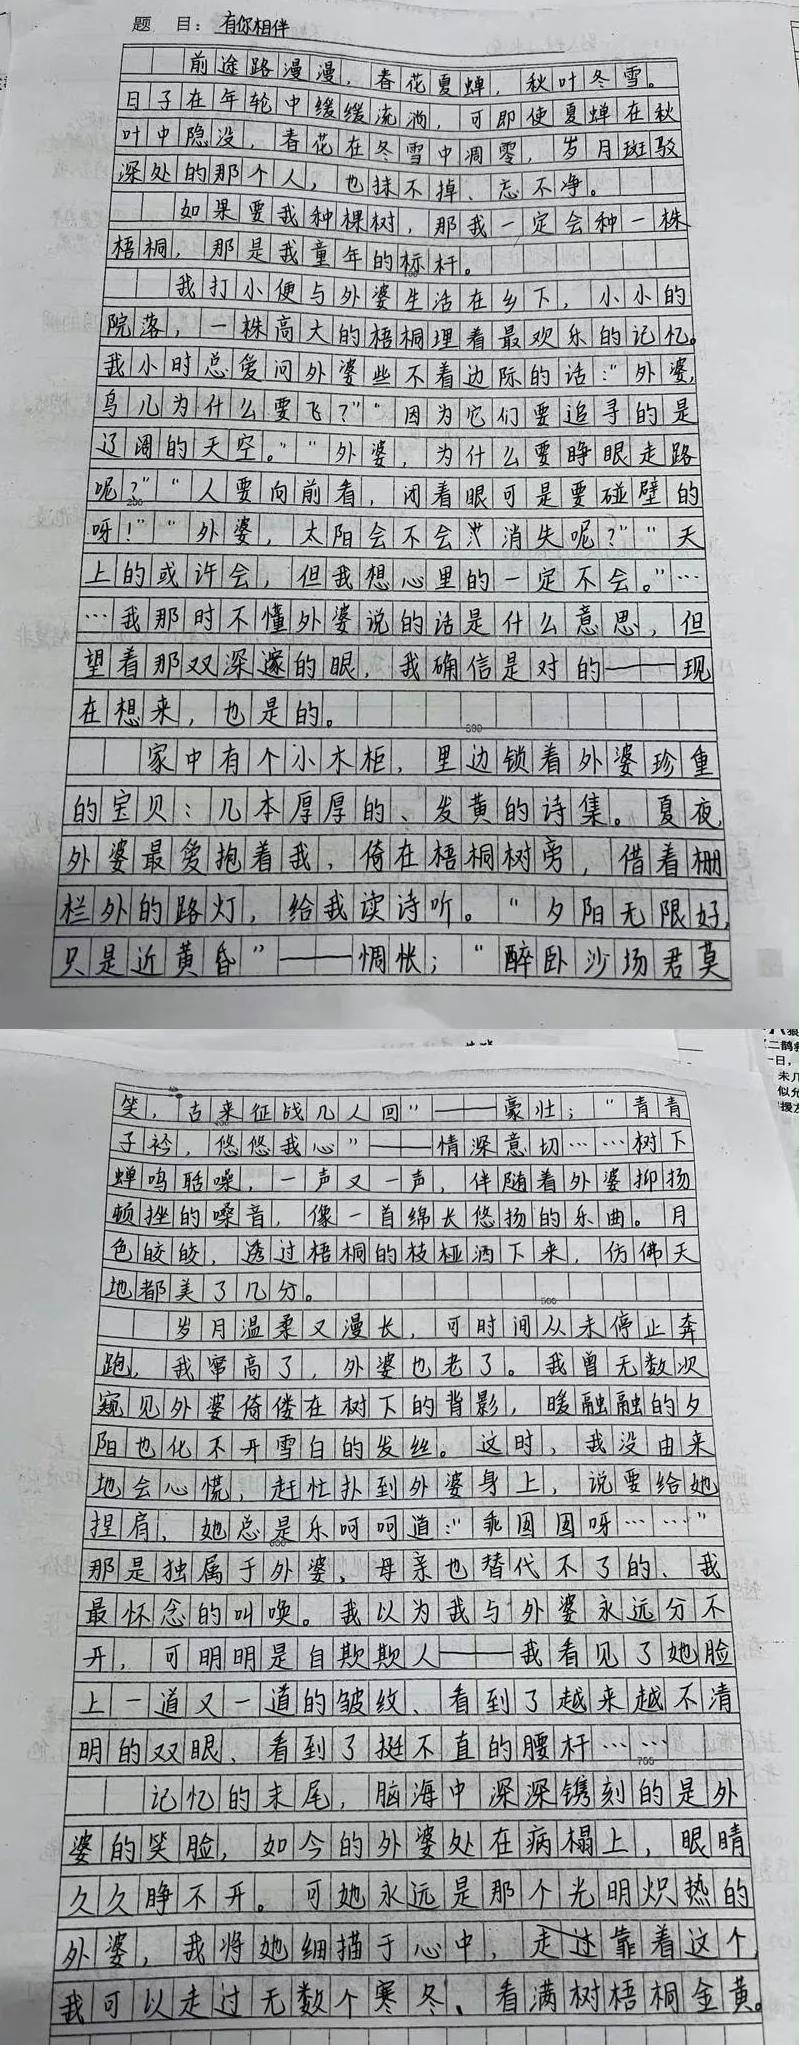 题 目：有你相伴
前途路漫漫，春花夏蝉，秋叶冬雪。
日子在年轮中缓缓流淌，可即使夏蝉在秋
叶中隐没，春花在冬雪中凋零，岁月斑驳
深处的那个人，也抹不掉、忘不净。
如果要我种棵树，那我一定会种一株
梧桐，那是我童年的标杆。
100
我打小便与外婆生活在乡下，小小的
院落，一株高大的梧桐埋着最欢乐的记忆。
我小时总爱问外婆些不着边际的话：“外婆，
鸟儿为什么要飞？”“因为它们要追寻的是
辽阔的天空。”“外婆，为什么要睁眼走路
呢？”“人要向前看，闭着眼可是要碰壁的
200
呀！”“外婆，太阳会不会消失呢？”“天
上的或许会，但我想心里的一定不会。”…
…我那时不懂外婆说的话是什么意思，但
望着那双深邃的眼，我确信是对的——现
在想来，也是的。
300
家中有个小木柜，里边锁着外婆珍重
的宝贝：几本厚厚的、发黄的诗集。夏夜，
外婆最爱抱着我，倚在梧桐树旁，借着栅
栏外的路灯，给我读诗听。“夕阳无限好，
只是近黄昏”——惆怅；“醉卧沙场君莫
笑，古来征战几人回”——豪壮；“青青
400
子衿，悠悠我心”——情深意切……树下
蝉鸣聒噪，一声又一声，伴随着外婆抑扬
顿挫的嗓音，像一首绵长悠扬的乐曲。月
色皎皎，透过梧桐的枝桠洒下来，仿佛天
地都美了几分。
500
岁月温柔又漫长，可时间从未停止奔
跑，我窜高了，外婆也老了。我曾无数次
窥见外婆倚偻在树下的背影，暖融融的夕
阳也化不开雪白的发丝。这时，我没由来
地会心慌，赶忙扑到外婆身上，说要给她
捏肩，她总是乐呵呵道：“乖囡囡呀……”
600
那是独属于外婆、母亲也替代不了的、我
最怀念的叫唤。我以为我与外婆永远分不
开，可明明是自欺欺人——我看见了她脸
上一道又一道的皱纹、看到了越来越不清
明的双眼、看到了挺不直的腰杆……
700
记忆的末尾，脑海中深深镌刻的是外
婆的笑脸，如今的外婆处在病榻上，眼睛
久久睁不开。可她永远是那个光明炽热的
外婆，我将她细描于心中，走过靠着这个，
我可以走过无数个寒冬、看满树梧桐金黄。